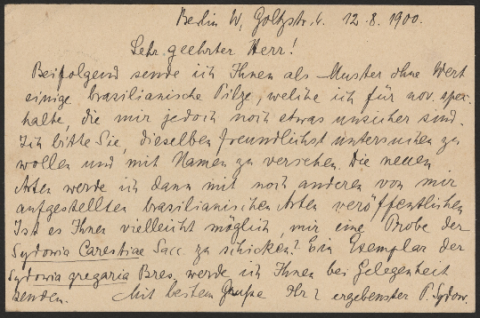 Berlin W, Goltzstr. 4. 12.8.1900.
Sehr geehrter Herr!
Beifolgend sende ich Ihnen als Muster ohne Wert
einige brasilianische Pilze, welche ich für nov. spec.
halte, die mir jedoch noch etwas unsicher sind.
Ich bitte Sie, dieselben freundlichst untersuchen zu
wollen und mit Namen zu versehen. Die neuen
Arten werde ich dann mit noch anderen von mir
aufgestellten brasilianischen Arten veröffentlichen
Ist es Ihnen vielleicht möglich, mir eine Probe der
Sydowia Carestiae Sacc. zu schicken? Ein Exemplar der
Sydowia gregaria Bres. werde ich Ihnen bei Gelegenheit
senden. Mit bestem Gruße Ihr ergebenster P. Sydow.